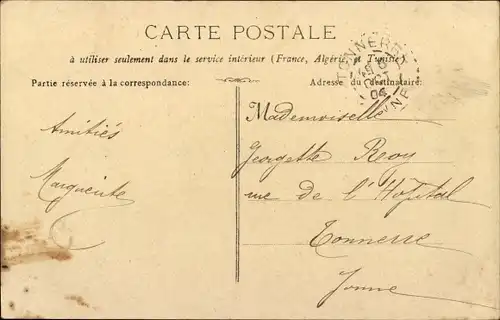 CARTE POSTALE
à utiliser seulement dans le service intérieur (France, Algérie, et Tunisie).
Partie réservée à la correspondance:
Adresse du destinataire:
TONNERRE
YONNE
04
Amitiés
Marguerite
Mademoiselle
Georgette Roy
rue de l'Hôpital
Tonnerre
Yonne